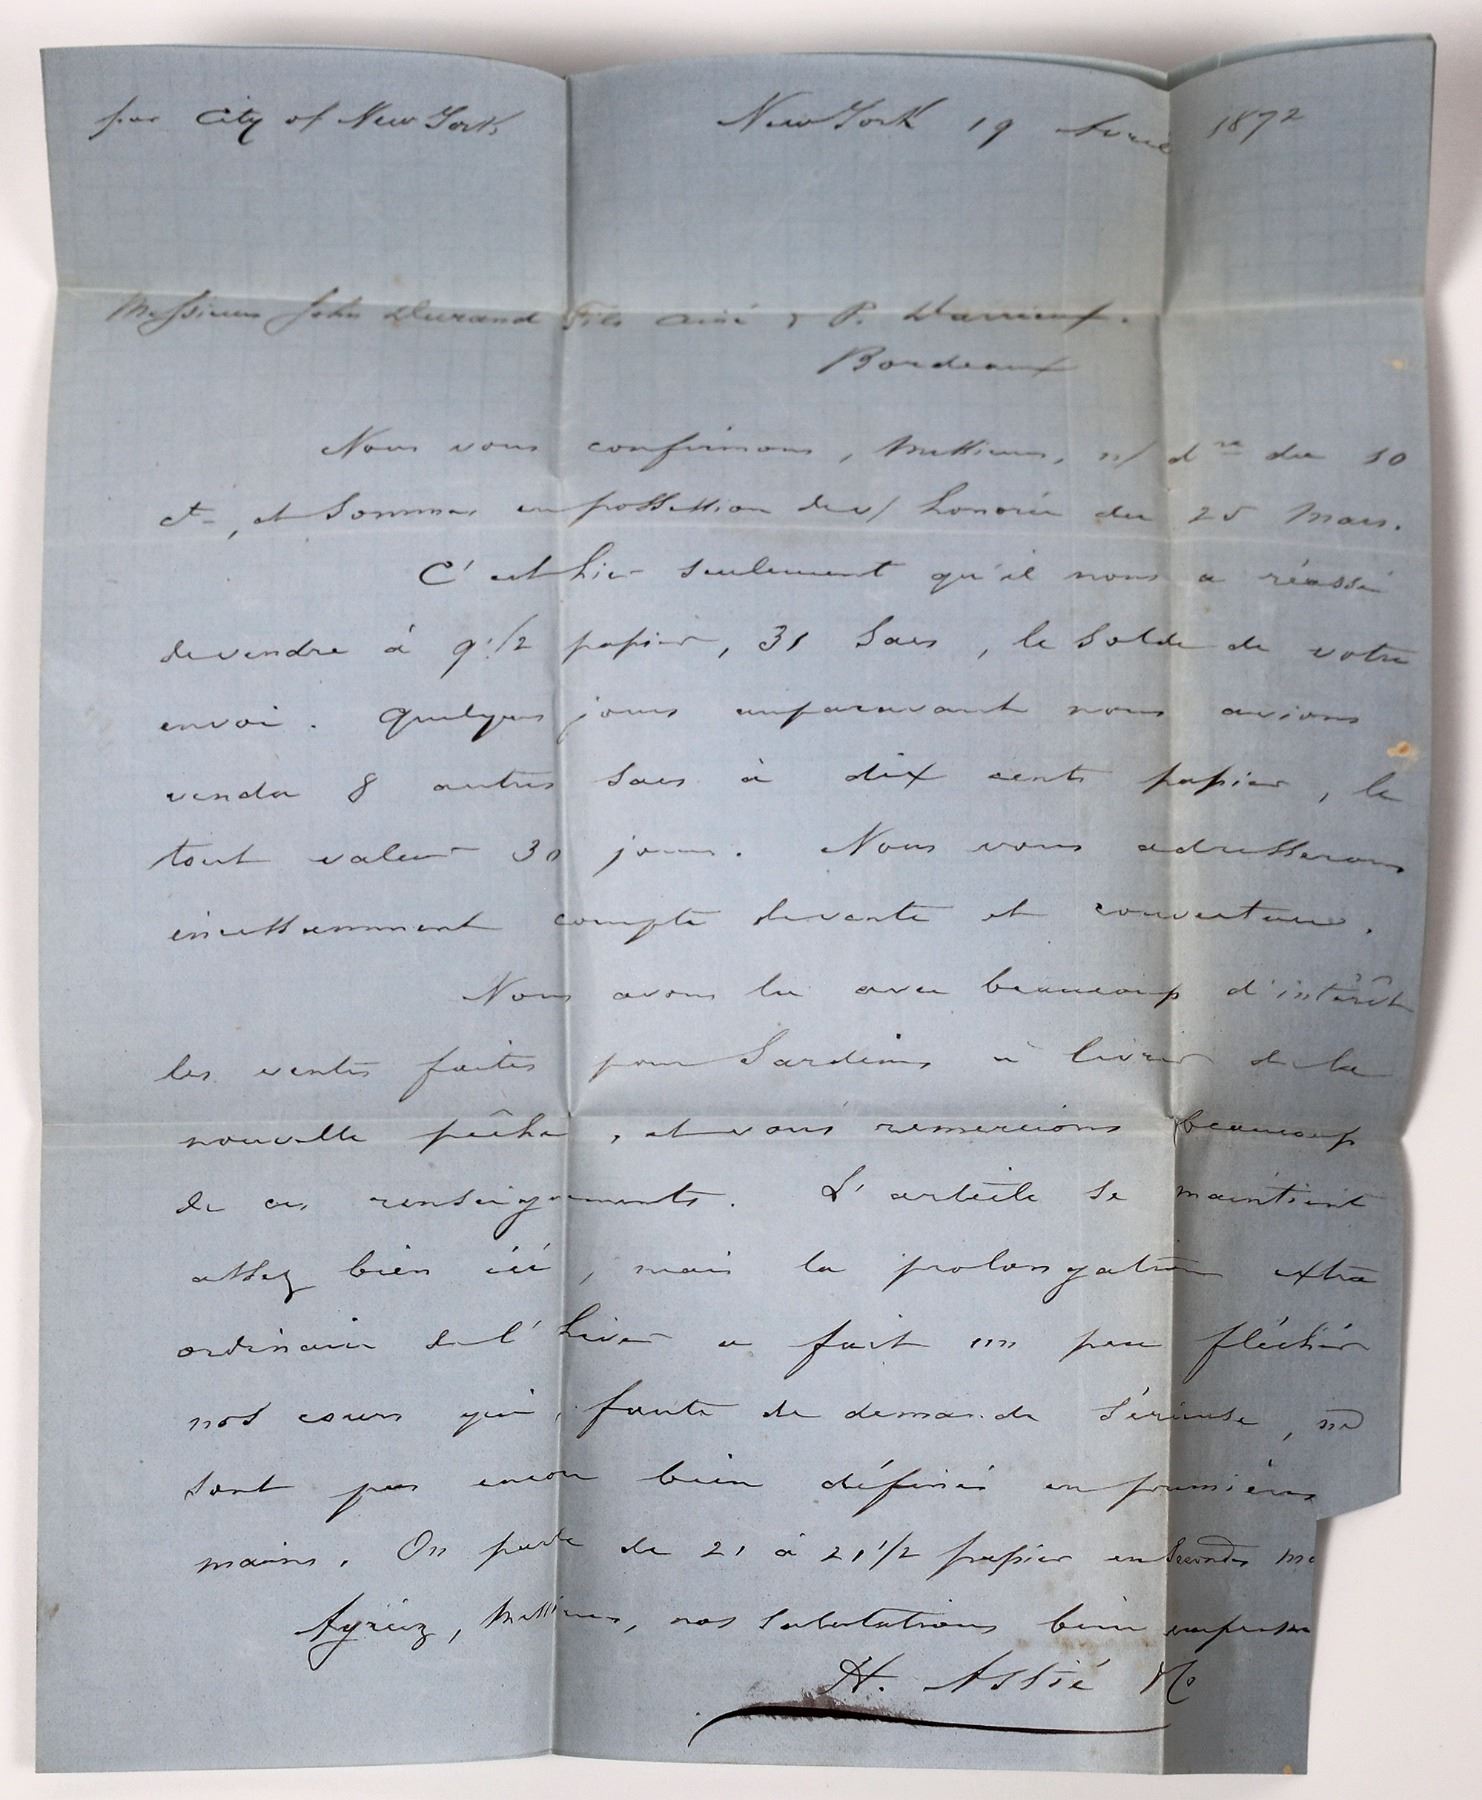 par City of New York New York 19 Avril 1872
Messieurs John Durand Fils Ainé & P. Darrieux.
Bordeaux
Nous vous confirmons, Messieurs, n/ dre du 10
ct, et sommes en possession de v/ honorée du 25 Mars.
C'est hier seulement qu'il nous a réussi
de vendre à 9 1/2 papier, 31 sacs, le solde de votre
envoi. Quelques jours auparavant nous avions
vendu 8 autres sacs à dix cents papier, le
tout valeur 30 jours. Nous vous adresserons
incessamment compte de vente et couverture.
Nous avons lu avec beaucoup d'intérêt
les ventes faites pour Sardines à livrer de la
nouvelle pêche, et vous remercions beaucoup
de ces renseignements. L'article se maintient
assez bien ici, mais la prolongation extra
ordinaire de l'hiver a fait un peu fléchir
nos cours qui, faute de demande sérieuse, ne
sont pas encore bien définis en premières
mains. On parle de 21 à 21 1/2 papier en secondes m
Agréez, Messieurs, nos salutations bien empressées
H. Astié & Co